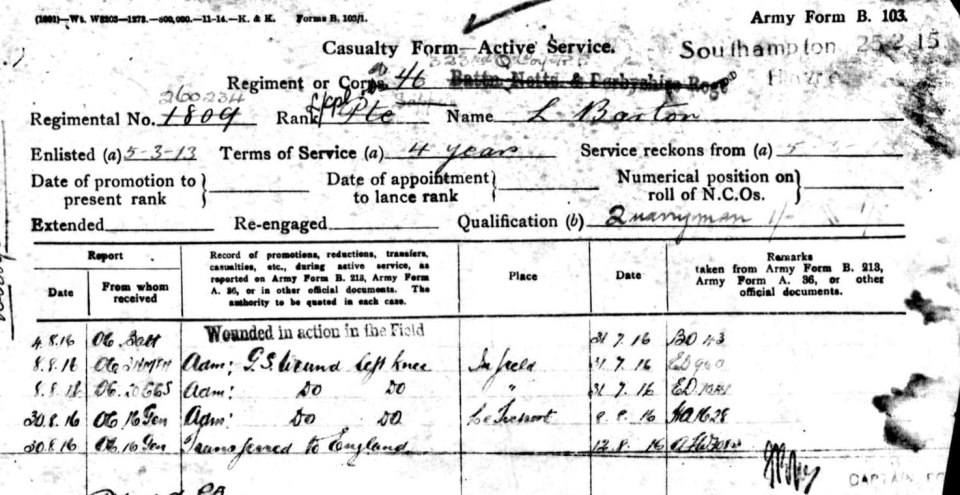 (1691)—Wt. W8203—1273.—500,000.—11-14.—K. & K. Forms B. 103/1.
Army Form B. 103.
Casualty Form—Active Service.
Southampton 25.2.15
Havre
Regiment or Corps 46 Battn Notts. & Derbyshire Regt
260234
Regimental No. 1809 Rank L/Cpl Pte Name L. Barton
Enlisted (a) 5-3-13 Terms of Service (a) 4 year Service reckons from (a) 5-3-
Date of promotion to present rank Date of appointment to lance rank Numerical position on roll of N.C.Os.
Extended Re-engaged Qualification (b) Quarryman
Report
Date From whom received
Record of promotions, reductions, transfers, casualties, etc., during active service, as reported on Army Form B. 213, Army Form A. 36, or in other official documents. The authority to be quoted in each case.
Place
Date
Remarks taken from Army Form B. 213, Army Form A. 36, or other official documents.
4.8.16 OC Batt Wounded in action in the Field 31 7.16
8.8.16 OC Adm: G.S. Wound left knee In field 31 7.16
8.8.16 OC Adm: Do Do " 31 7.16
30.8.16 OC 16 Gen Adm: Do Do Le Treport 8.16
30.8.16 OC 16 Gen Transferred to England 12.8.16
CAPTAIN